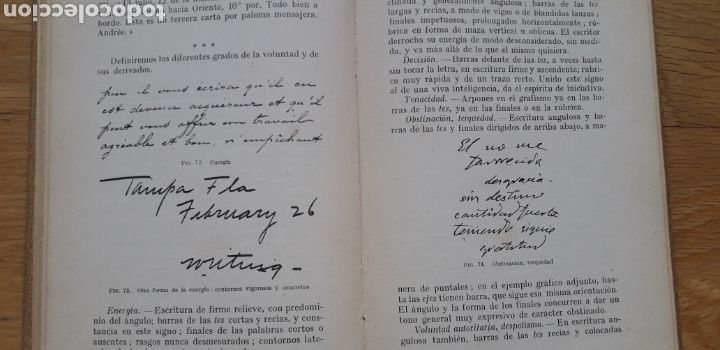 todocoleccion
bordo. Esta es la tercera carta por paloma mensajera.
Andrée. »
* * *
Definiremos los diferentes grados de la voluntad y de
sus derivados.
il vous écrira qu'il en
est devenu acquéreur et qu'il
peut vous offrir un travail
agréable et bon, n'empêchant
Energía
Tampa Fla
February 26
writing
FIG. 73. Otra forma de la energía: contornos vigorosos y concretos
Energía. — Escritura de firme relieve, con predomi-
nio del ángulo; barras de las tes cortas y recias, y cons-
tancia en este signo; finales de las palabras cortos o
ausentes; rasgos nunca desmesurados; contornos late-
largas y recias, a modo de vigas o de blandidas lanzas;
finales impetuosos, prolongados horizontalmente; rú-
brica en forma de maza vertical u oblicua. El escritor
derrocha su energía de modo desconsiderado, sin medi-
da, y va más allá de lo que él mismo quisiera.
Decisión. — Barras delante de las tes, a veces hasta
sin tocar la letra, en escritura firme y ascendente; rúbrica
muy rápida y de un trazo recto. Unido este signo
al de una viva inteligencia, da el espíritu de iniciativa.
Tenacidad. — Arpones en el grafismo ya en las ba-
rras de las tes, ya en las finales o en la rúbrica.
Obstinación, terquedad. — Escritura angulosa y ba-
rras de las tes y finales dirigidos de arriba abajo, a ma-
El no me
favorecida
desgracia
sin destino
cantidad fuerte
temiendo sigue
FIG. 74. Obstinación, terquedad
nera de puntales; en el ejemplo gráfico adjunto, has-
ta las efes tienen barra, que sigue esa misma orientación.
El ángulo y la forma de los finales concurren a dar un
tono general muy expresivo de carácter obstinado.
Voluntad autoritaria, despotismo. — En escritura an-
gulosa también, barras de las tes recias y colocadas